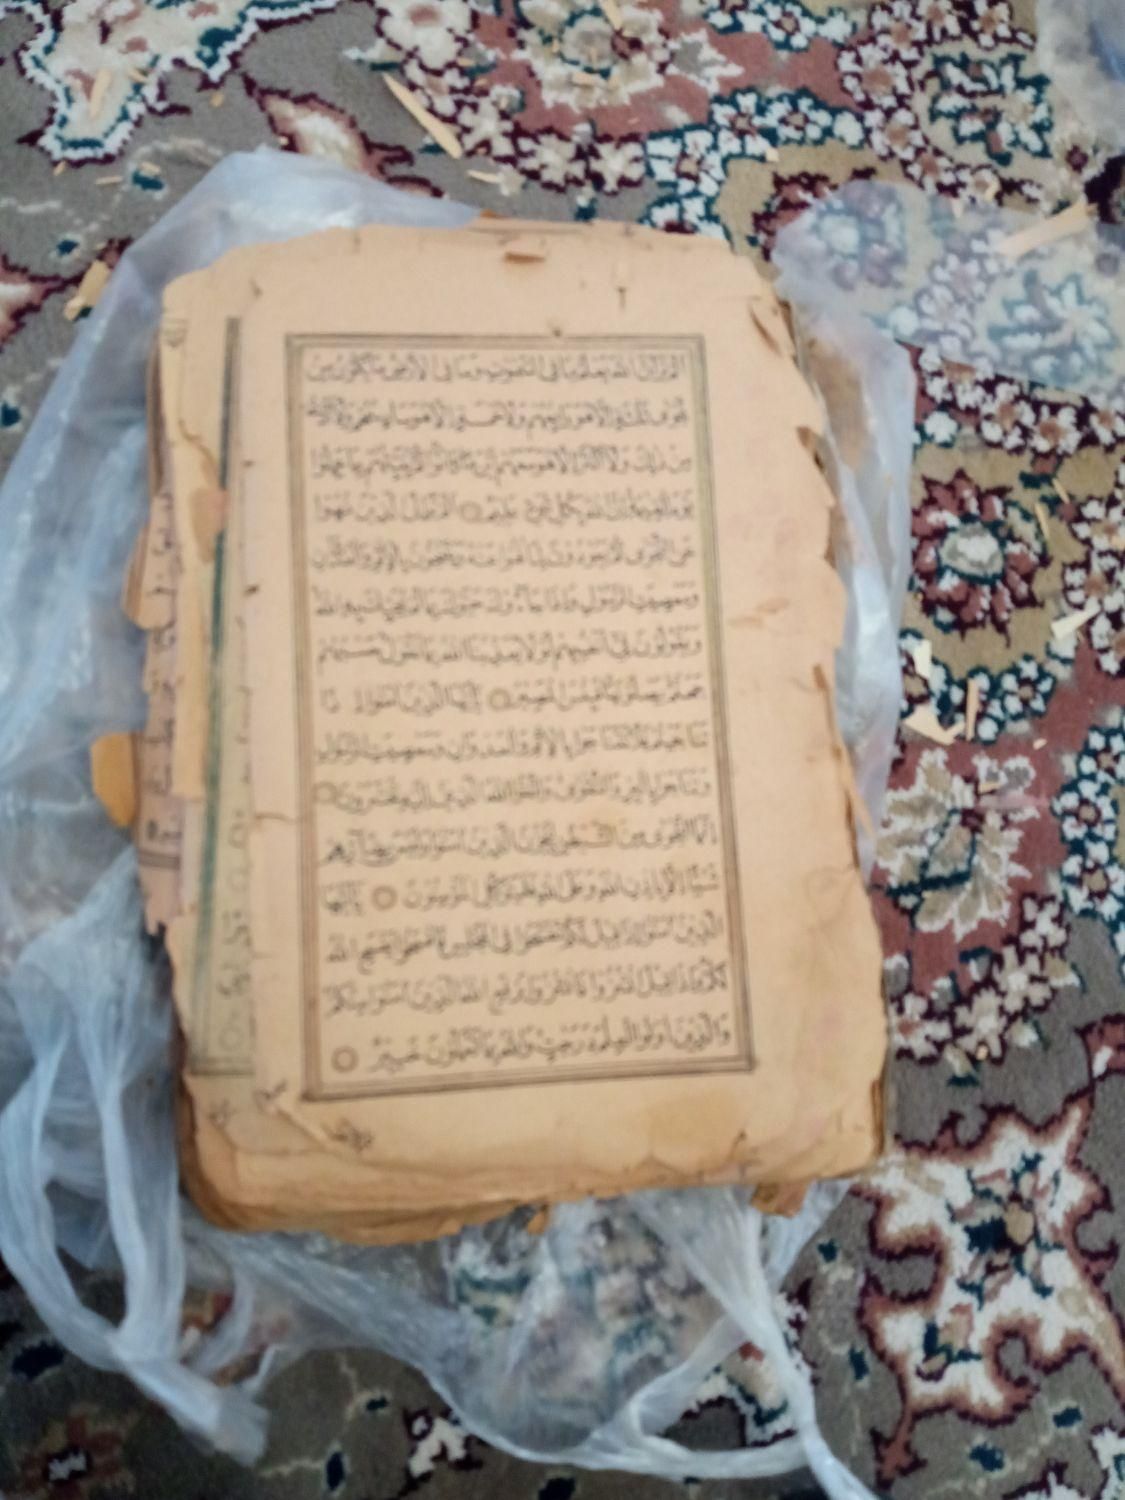 الم تر ان الله يعلم ما في السموت وما في الارض ما يكون من
نجوى ثلثة الا هو رابعهم ولا خمسة الا هو سادسهم ولا ادنى
من ذلك ولا اكثر الا هو معهم اين ما كانوا ثم ينبئهم بما عملوا
يوم القيمة ان الله بكل شئ عليم الم تر الى الذين نهوا
عن النجوى ثم يعودون لما نهوا عنه ويتنجون بالاثم والعدوان
ومعصيت الرسول واذا جاءوك حيوك بما لم يحيك به الله
ويقولون في انفسهم لولا يعذبنا الله بما نقول حسبهم
جهنم يصلونها فبئس المصير يا ايها الذين امنوا اذا
تناجيتم فلا تتناجوا بالاثم والعدوان ومعصيت الرسول
وتناجوا بالبر والتقوى واتقوا الله الذي اليه تحشرون
انما النجوى من الشيطن ليحزن الذين امنوا وليس بضارهم
شيئا الا باذن الله وعلى الله فليتوكل المؤمنون يا ايها
الذين امنوا اذا قيل لكم تفسحوا في المجلس فافسحوا يفسح الله
لكم واذا قيل انشزوا فانشزوا يرفع الله الذين امنوا منكم
والذين اوتوا العلم درجت والله بما تعملون خبير